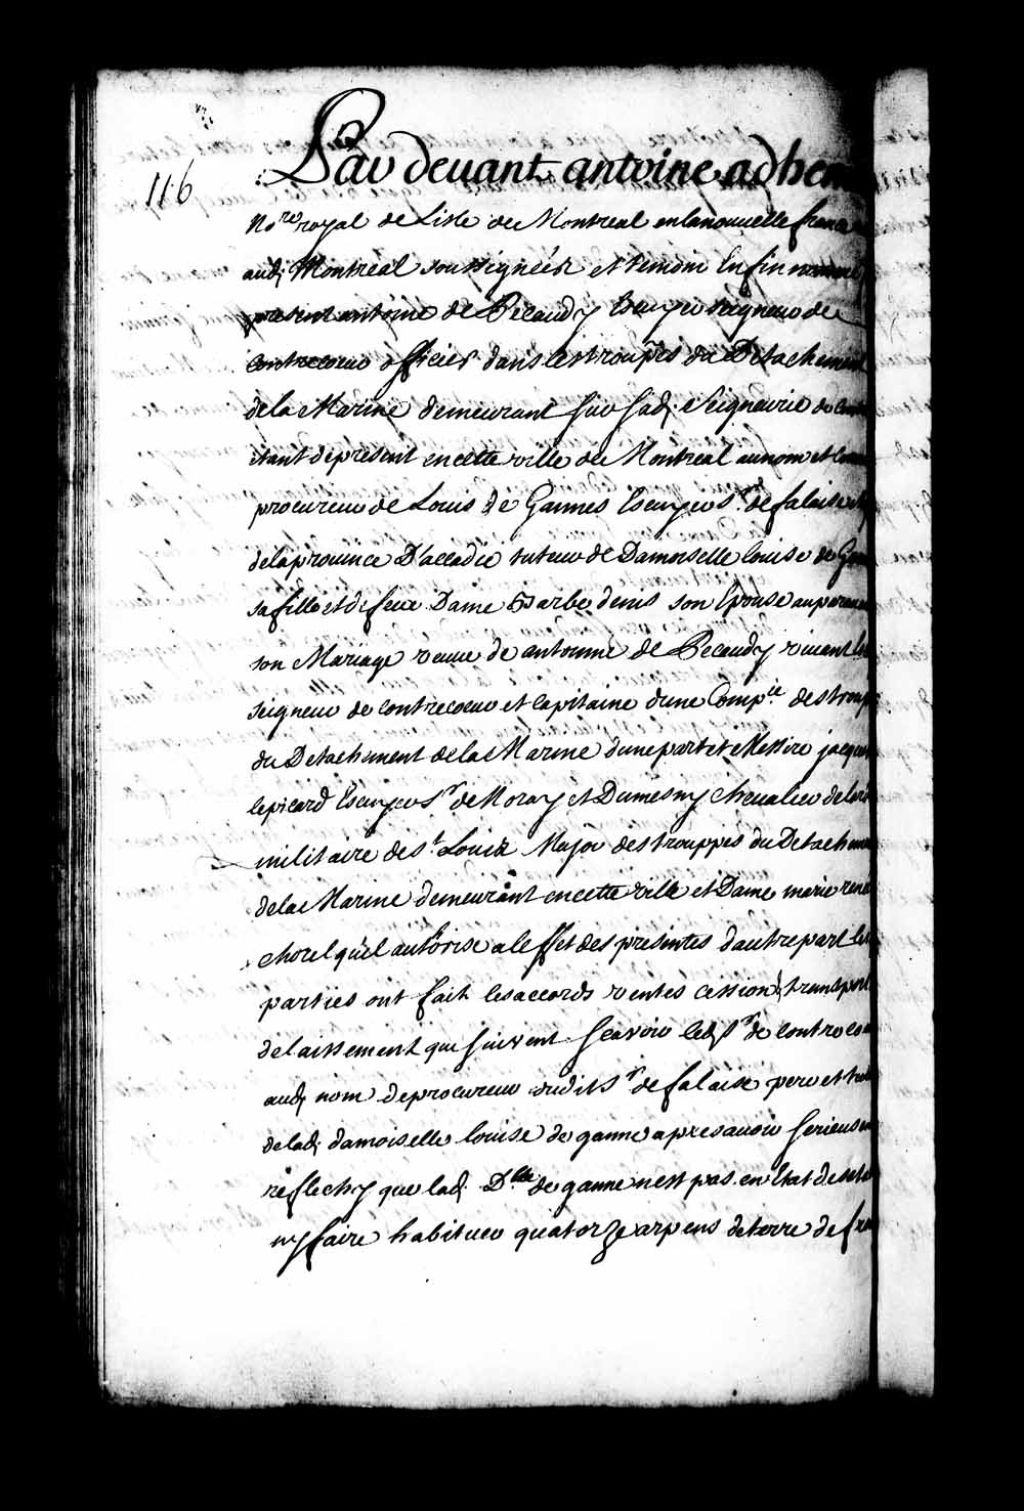 116
Par devant antoine adhem
no.re royal de Lisle de Montreal en la nouvelle france
aud; Montreal soussignéér et temoins Enfin nommé
present antoine de Pecaudy Escuyer seigneur de
Contrecoeur officier dans les trouppes du Detachement
de la Marine demeurant sur sad; Seigneurie de Cont
etant de present en cette ville de Montreal au nom et comme
procureur de Louis de Gannes Escuyer Sr. de falaise
de la province D'accadie tuteur de Damoiselle louise de Gan
sa fille et de feue Dame Barbe denis son Epouse auparavan
son Mariage veuve de antoinne de Pecaudy vivant
seigneur de contrecoeur et Capitaine dune Comp.ie des troup
du Detachement de la Marine dune part et Messire jacque
lepicard Escuyer Sr de Noray et Dumesny chevalier de lord
militaire de St. Louis Major des trouppes du Detachem
de la Marine demeurant en cette ville et Dame marie rene
chorel qu'il autorise a leffet des presentes dautre part
parties ont fait les accords ventes cession & transport
delaissement qui suivent Scavoir led; Sr de contrecoe
aud; nom de procureur dudit Sr de falaise pere et tut
de lad; damoiselle louise de ganne apres avoir serieusem
reflechy que lad; D.lle de ganne nest pas en Etat de
ny faire habituer quatorze arpens de terre de fron